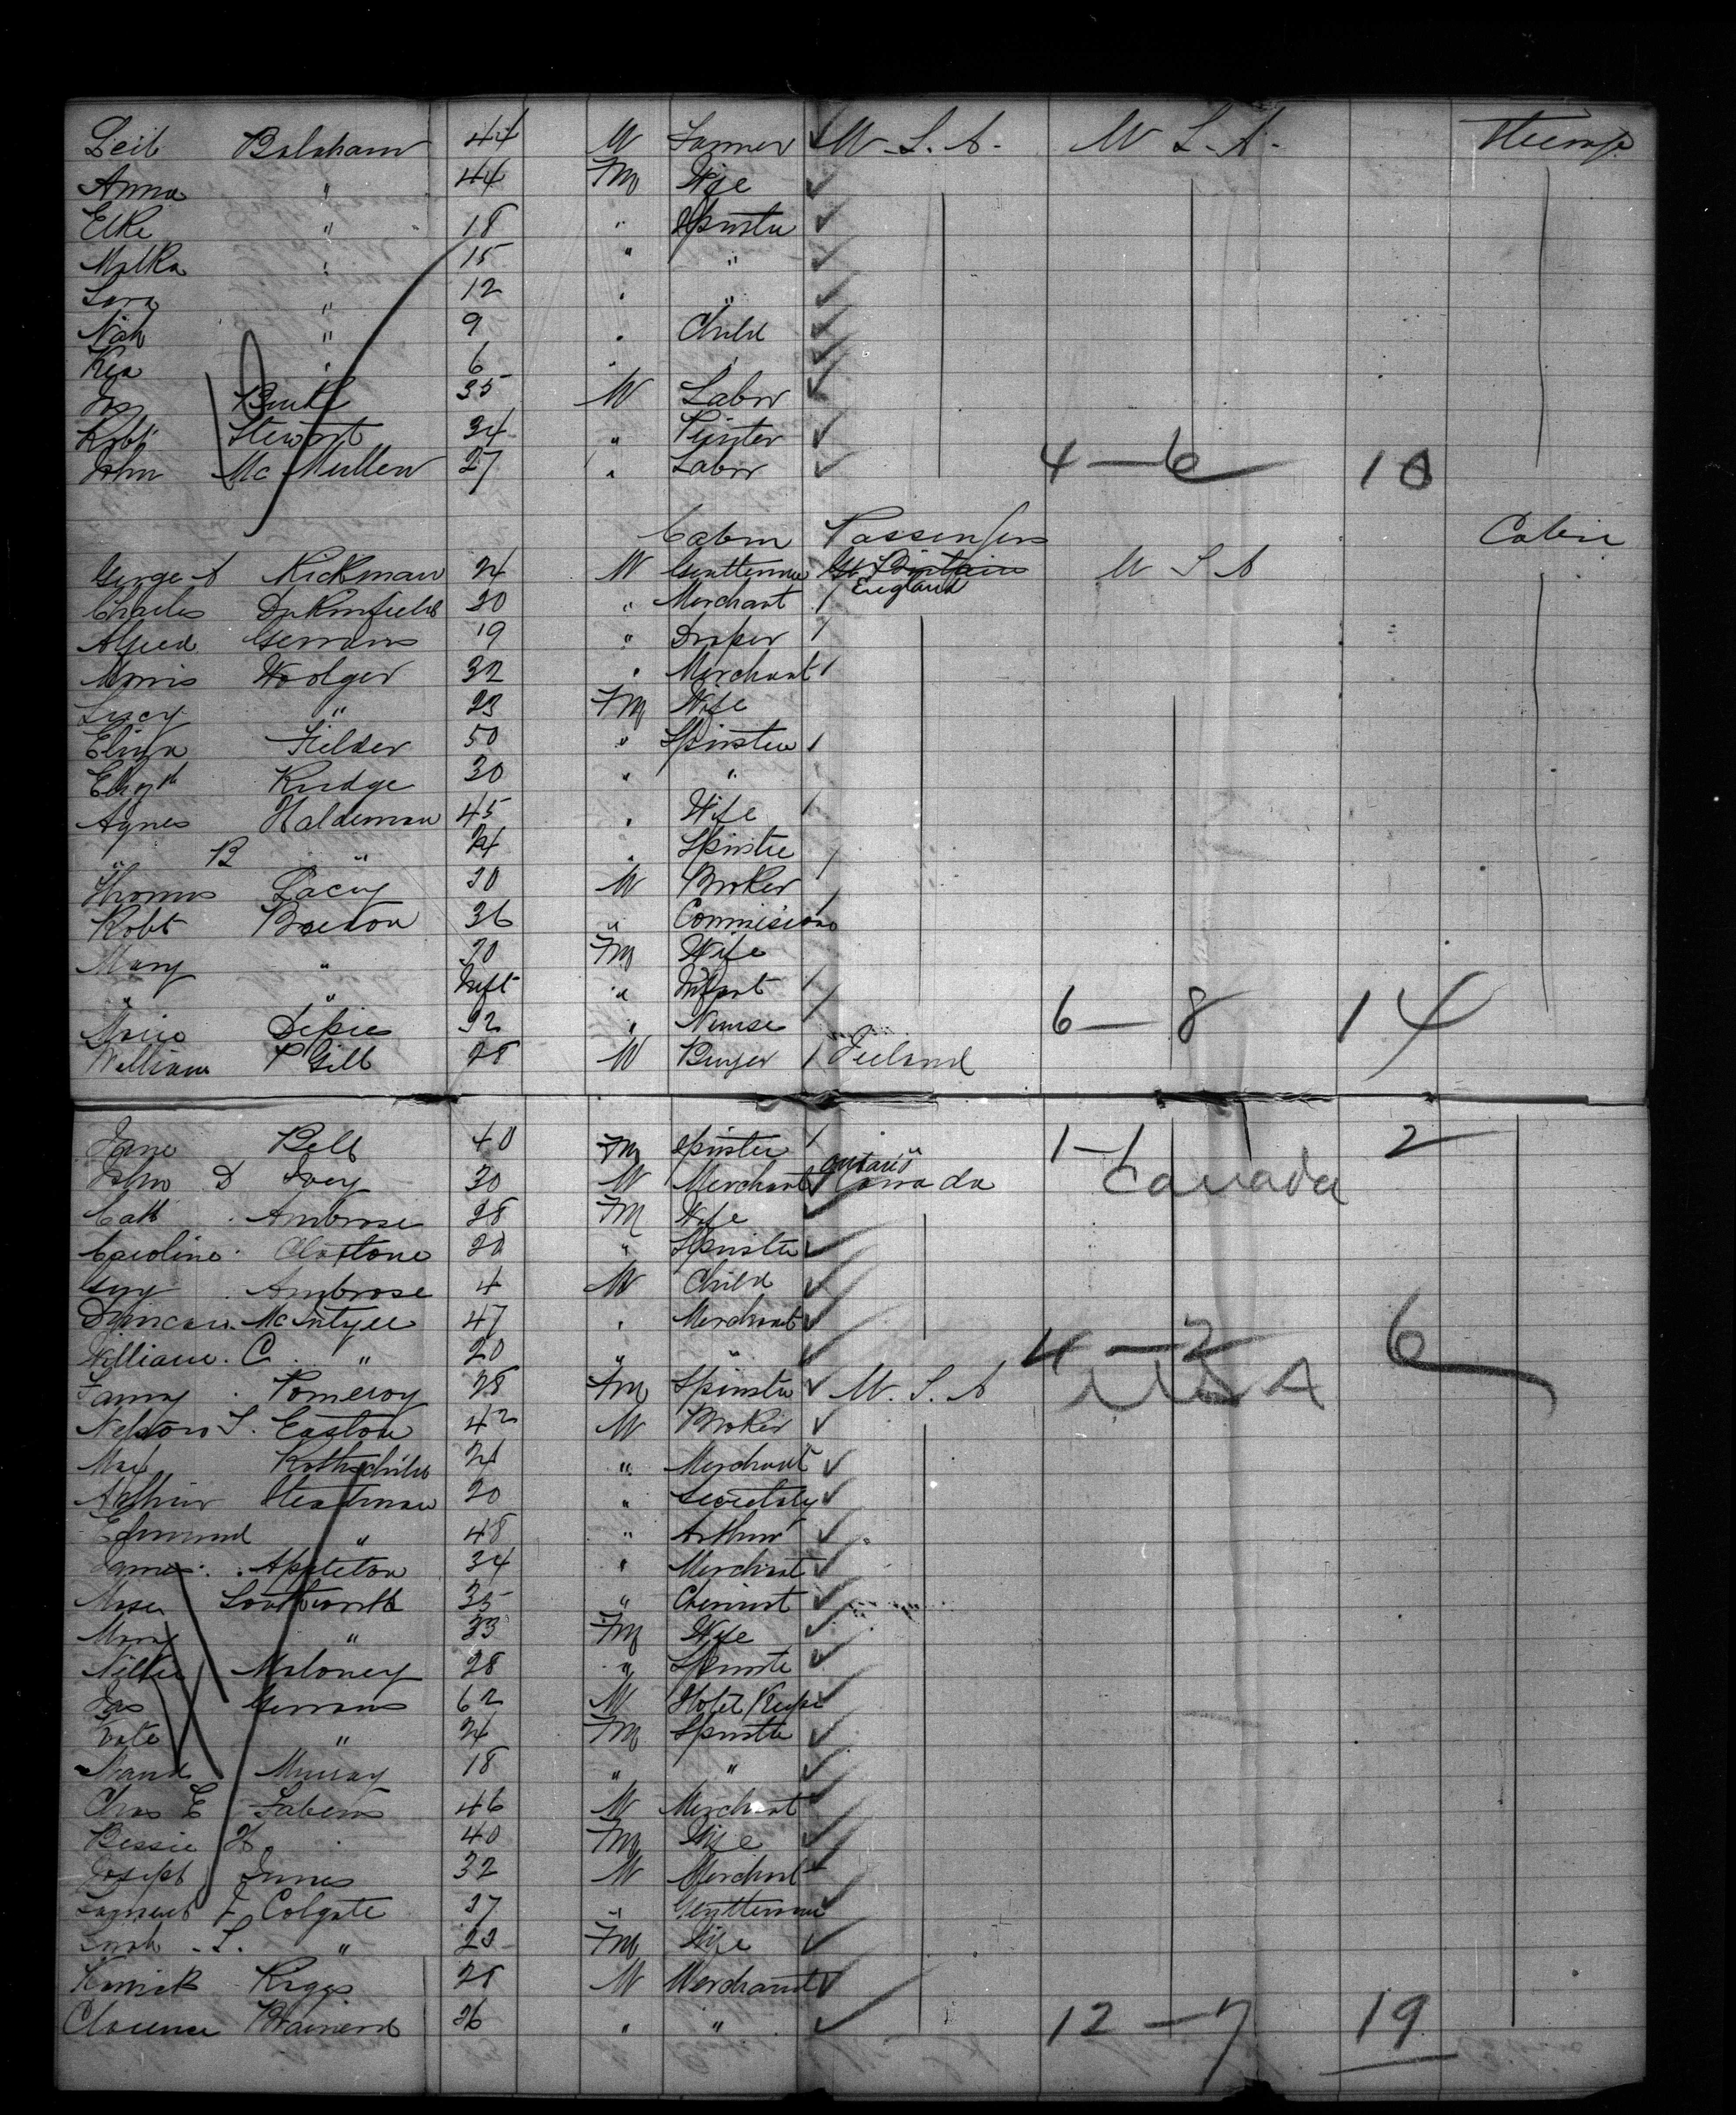 Leib Balaham 44 M Farmer ✓ U.S.A. U S.A. Steerage
Anna " 44 Fm Wife ✓
Elke " 18 " Spinster ✓
Malka " 15 " " ✓
Sara " 12 " " ✓
" 9 " Child ✓
" 6 " " ✓
Burke 35 M Labor ✓
Robt Stewart 34 " ✓
John McMullen 27 " Labor ✓ 4 — 6 10
Cabin Passengers Cabin
George A Rickman 24 M Gentleman Gt Britain U S A
Charles Dukinfield 20 " Merchant / England
Alfred Gerrans 19 " Draper /
Morris Woolger 32 " Merchant /
Lucy " 23 Fm Wife
Eliza Fielder 50 " Spinster /
Elizth Rudge 30 " "
Agnes Haldeman 45 " Wife /
" B " 24 " Spinster /
Thomas Lacey 30 M Broker
Robt 36 " Commission
Mary " 30 Fm Wife
" " Inft " Infant /
32 " Nurse / 6 — 8 14
William P Gill 28 M Buyer / Ireland
Jane Bell 40 Fm Spinster / 1 - 1 2
John D Ivey 30 M Merchant ✓ Ontario Canada Canada
Cath Ambrose 28 Fm Wife ✓
Caroline 20 " Spinster ✓
Guy Ambrose 4 M Child ✓
Duncan McIntyre 47 " Merchant ✓
William C " 20 " " ✓ 4 — 2 6
Fanny Pomeroy 28 Fm Spinster ✓ U. S. A U S A
Nelson S. Easton 42 M Broker ✓
Max Rothschild 24 " Merchant ✓
Arthur Stedman 20 " Secretary ✓
Edmund " 48 " Arthur ✓
James Appleton 34 " Merchant ✓
Southworth 35 " Chemist ✓
Mary " 33 Fm Wife ✓
Nellie Maloney 28 " Spinster ✓
Jas Gerrans 62 M Hotel Keeper ✓
Kate " 24 Fm Spinster ✓
Maud Murray 18 " " ✓
Chas E Fabens 46 M Merchant ✓
Bessie H. 40 Fm Wife ✓
Joseph Innes 32 M Merchant ✓
Colgate 27 " Gentleman ✓
Sarah S. " 23 Fm Wife ✓
Riggs 28 M Merchant ✓
Clarence Brainerd 26 " " ✓ 12 — 7 19